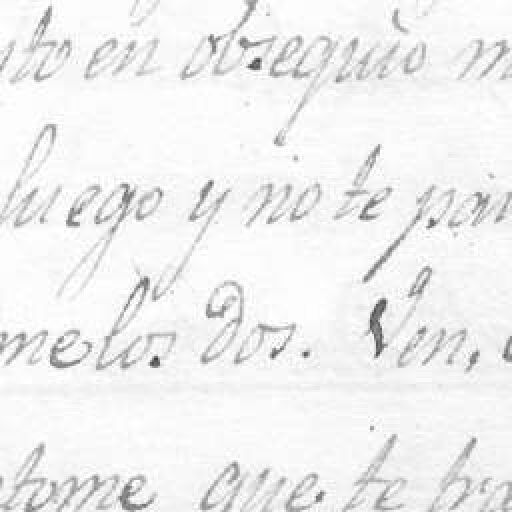 en obsequio
luego y no te
melos dos. Ven,
tome que te